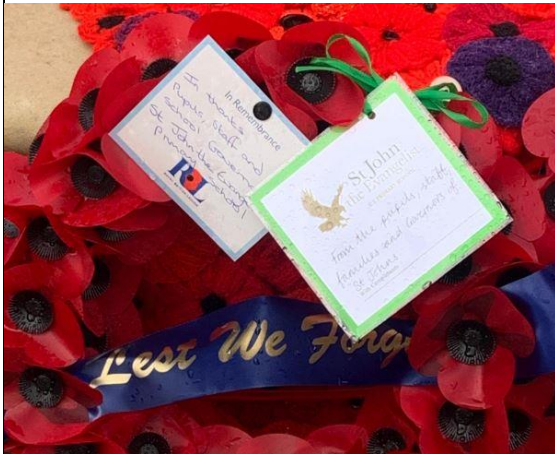 In Remembrance
In thanks
Pupils, staff and
School Governors
St John the Evangelist
Primary School
RBL
St John
the Evangelist
from the pupils, staff,
families and Governors of
St Johns
Lest We Forg